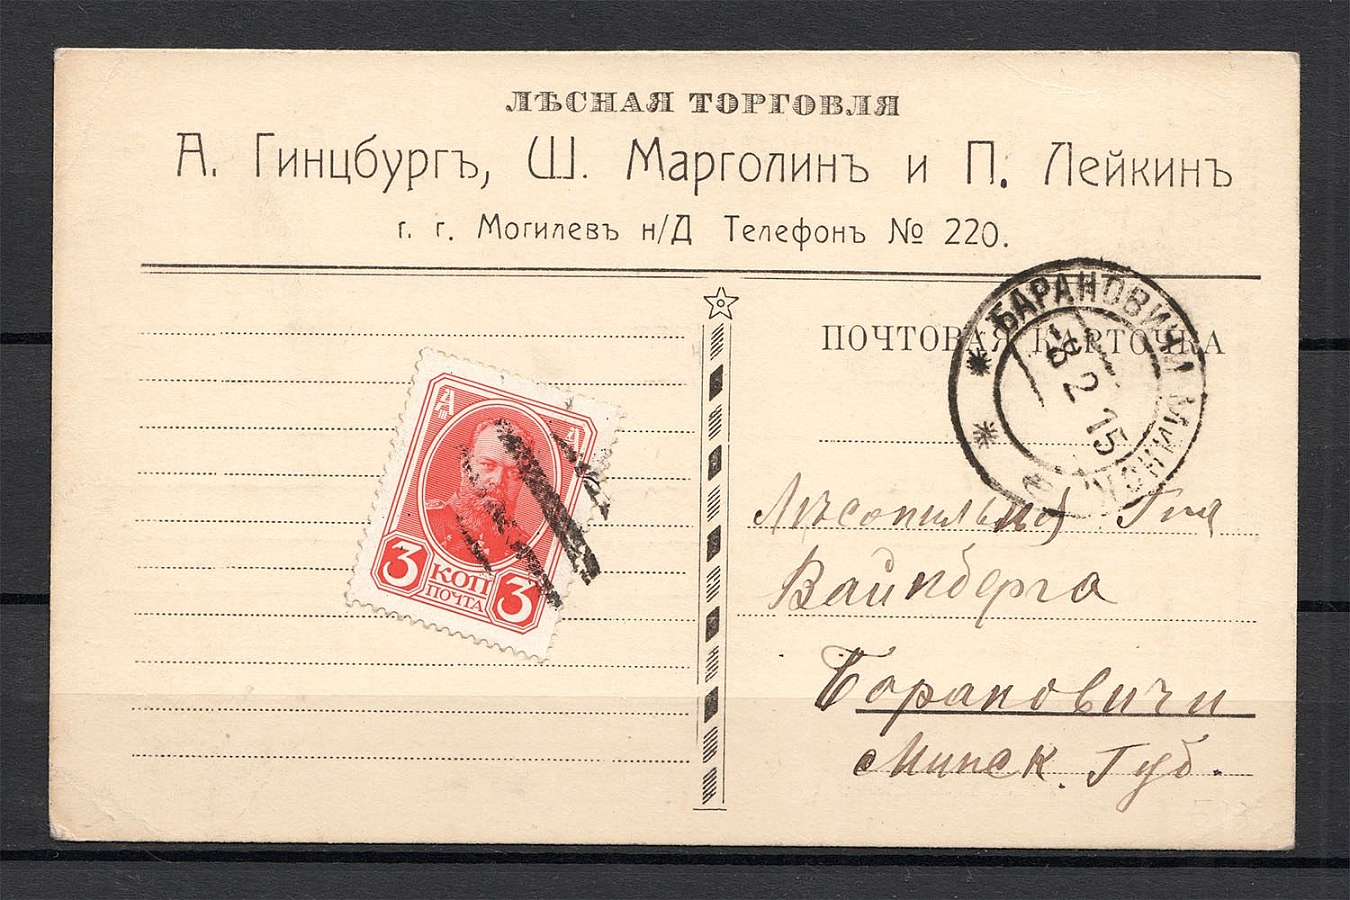 ЛѢСНАЯ ТОРГОВЛЯ
А. Гинцбургъ, Ш. Марголинъ и П. Лейкинъ
г. г. Могилевъ н/Д Телефонъ № 220.
ПОЧТОВАЯ КАРТОЧКА
БАРАНОВИЧИ МИНСК
2 15
3 КОП 3
ПОЧТА
Лѣсопильня
Вайнберга
Барановичи
Минск. Губ.